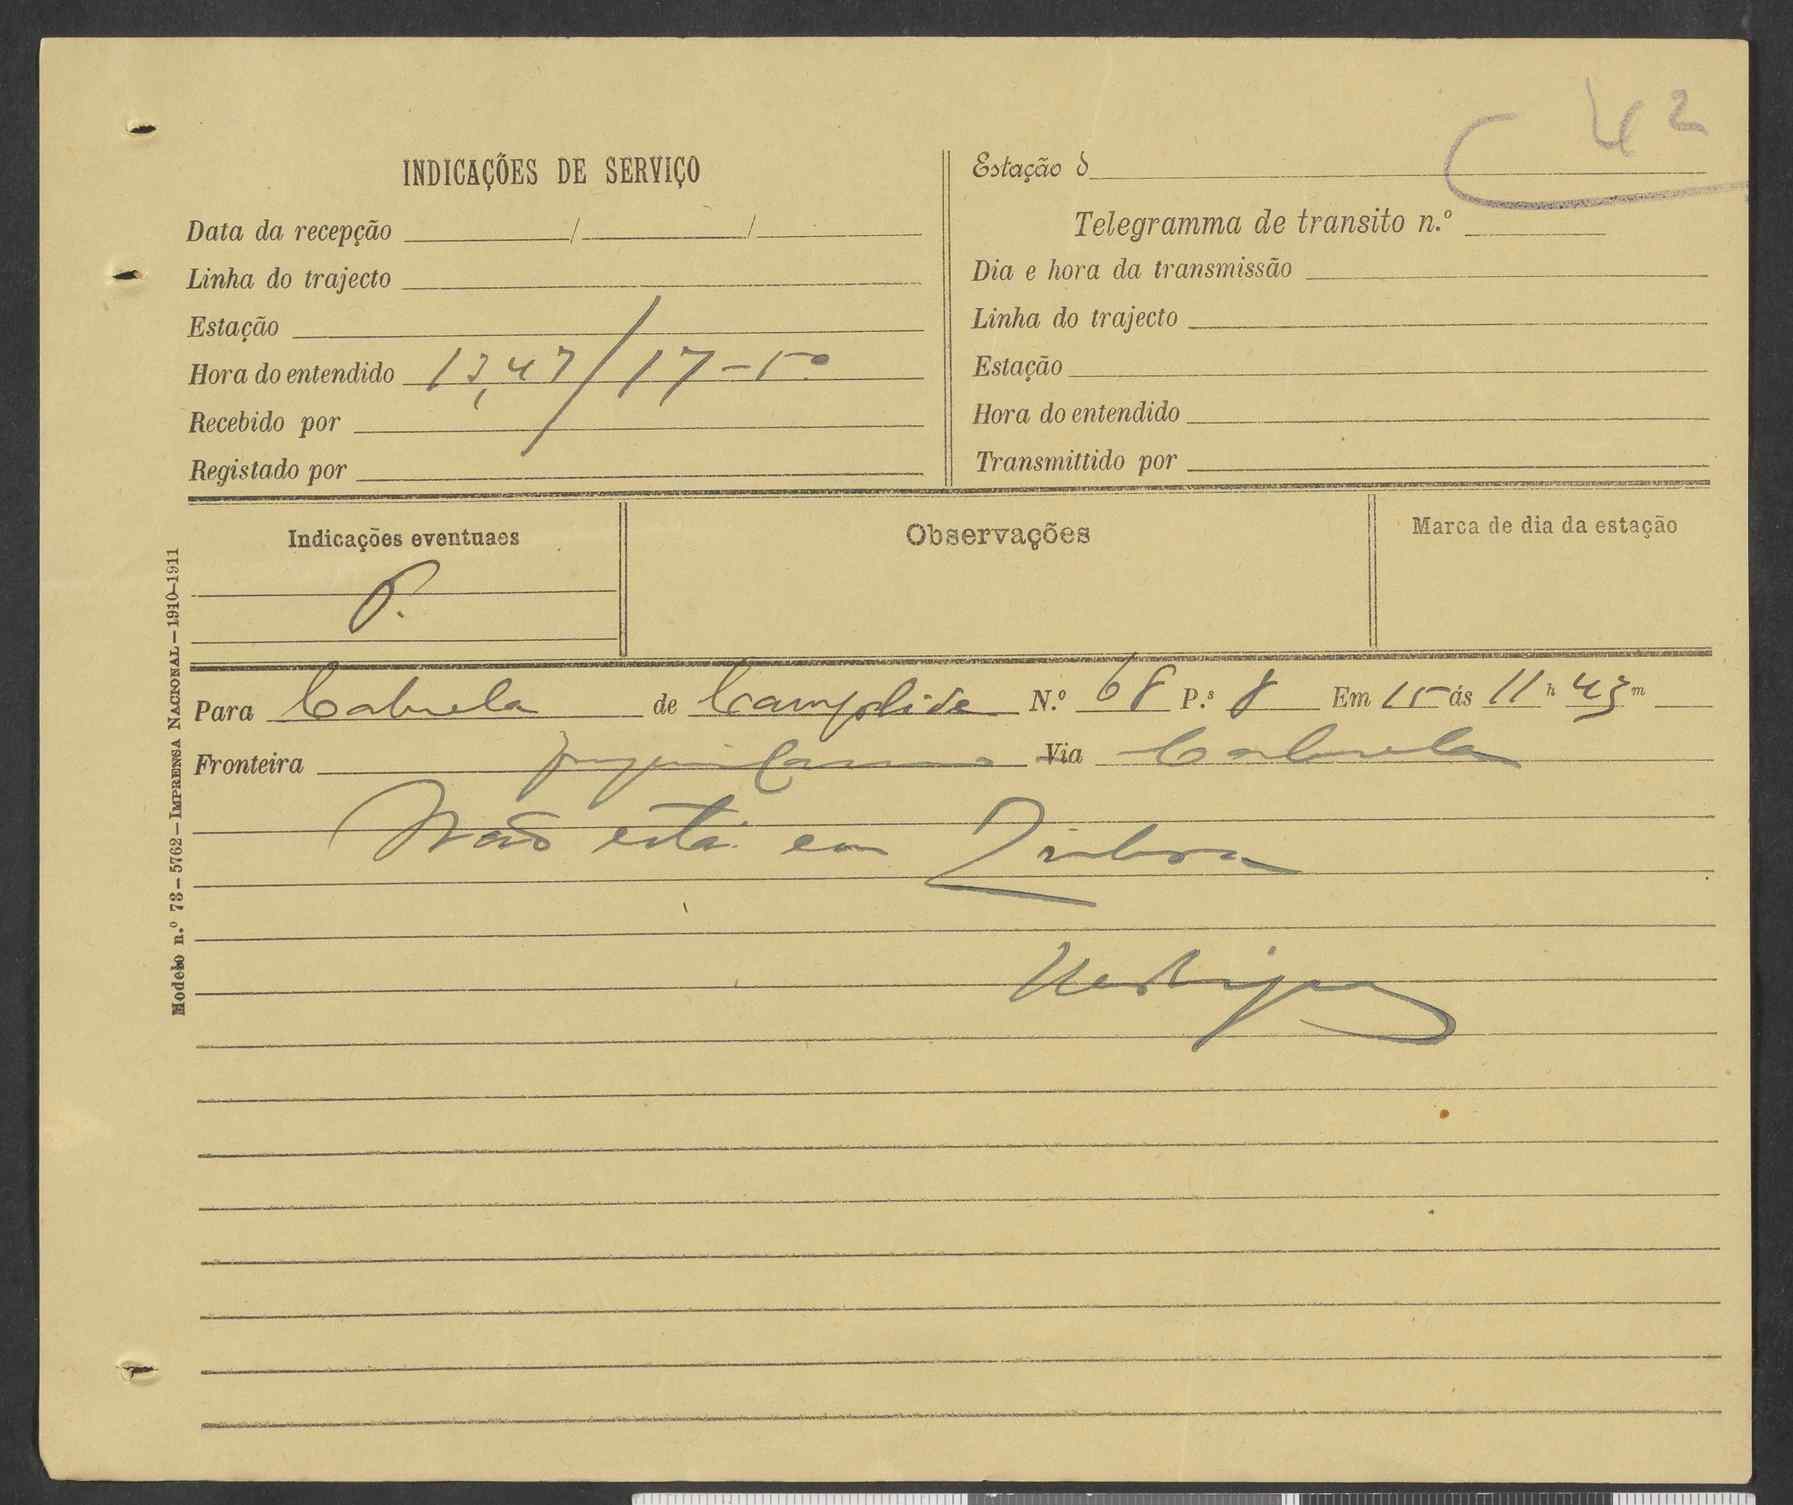 42
INDICAÇÕES DE SERVIÇO
Data da recepção / /
Linha do trajecto
Estação
Hora do entendido 13,47/17-5º
Recebido por
Registado por
Estação d
Telegramma de transito n.º
Dia e hora da transmissão
Linha do trajecto
Estação
Hora do entendido
Transmittido por
Indicações eventuaes
P.
Observações
Marca de dia da estação
Para Cabrela de Campolide N.º 68 P.s 8 Em 15 ás 11 h 43 m
Fronteira Via Cabrela
Não está em Lisboa
Modelo n.º 73—5762—IMPRENSA NACIONAL—1910-1911